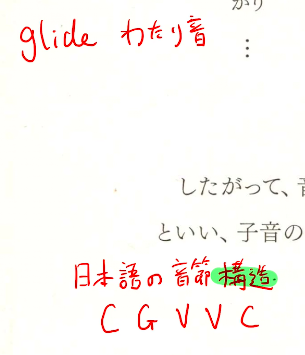 がり
glide わたり音
⋮
したがって、
といい、子音の
日本語の音節構造
C G V V C